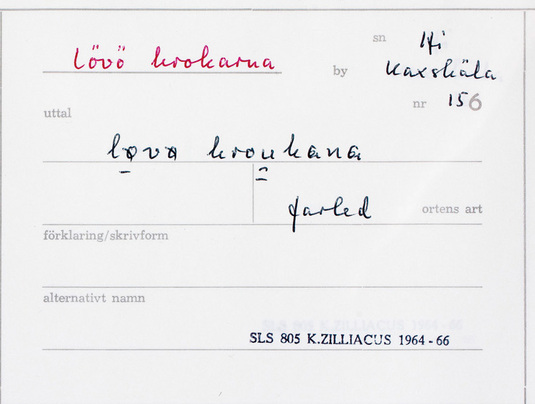 sn Hi
Lövö krokarna
by Kaxskäla
nr 156
uttal
lövö kroukana
farled ortens art
förklaring/skrivform
alternativt namn
SLS 805 K.ZILLIACUS 1964-66